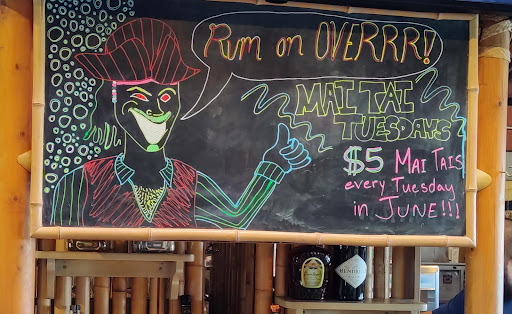 Rum on OVERRR!
MAI TAI
TUESDAYS
$5 MAI TAIS
every Tuesday
in JUNE!!!
HENDRICK'S